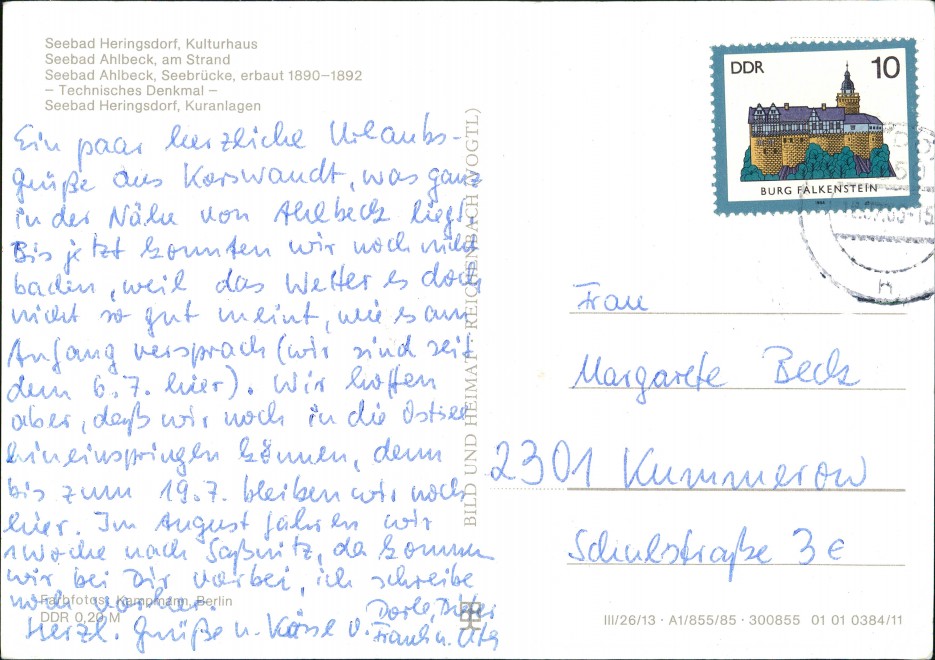 Seebad Heringsdorf, Kulturhaus
Seebad Ahlbeck, am Strand
Seebad Ahlbeck, Seebrücke, erbaut 1890–1892
– Technisches Denkmal –
Seebad Heringsdorf, Kuranlagen
Ein paar herzliche Urlaubs-
grüße aus Korswandt, was ganz
in der Nähe von Ahlbeck liegt.
Bis jetzt konnten wir noch nicht
baden, weil das Wetter es doch
nicht so gut meint, wie es am
Anfang versprach (wir sind seit
dem 6.7. hier). Wir hoffen
aber, daß wir noch in die Ostsee
hineinspringen können, denn
bis zum 19.7. bleiben wir noch
hier. Im August fahren wir
1 Woche nach Saßnitz, da kommen
wir bei Dir vorbei, ich schreibe
noch vorher.
Herzl. Grüße u. Küsse v. Dorle,
Frank u. Uta
Farbfotos: Kampmann, Berlin
DDR 0,20 M
BILD UND HEIMAT REICHENBACH (VOGTL)
DDR 10
BURG FALKENSTEIN
Frau
Margarete Beck
2301 Kummerow
Schulstraße 3e
III/26/13 · A1/855/85 · 300855 01 01 0384/11